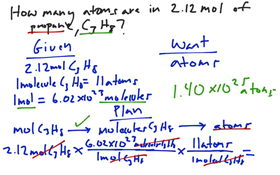 How many atoms are in 2.12 mol of
propane, C₃H₈?
Given
Want
2.12 mol C₃H₈
atoms
1 molecule C₃H₈ = 11 atoms
1 mol = 6.02 x 10²³ molecules
1.40 x 10²⁵ atoms
Plan
mol C₃H₈ → molecules C₃H₈ → atoms
2.12 mol C₃H₈ x 6.02 x 10²³ molecules C₃H₈ / 1 mol C₃H₈ x 11 atoms / 1 molec C₃H₈ =